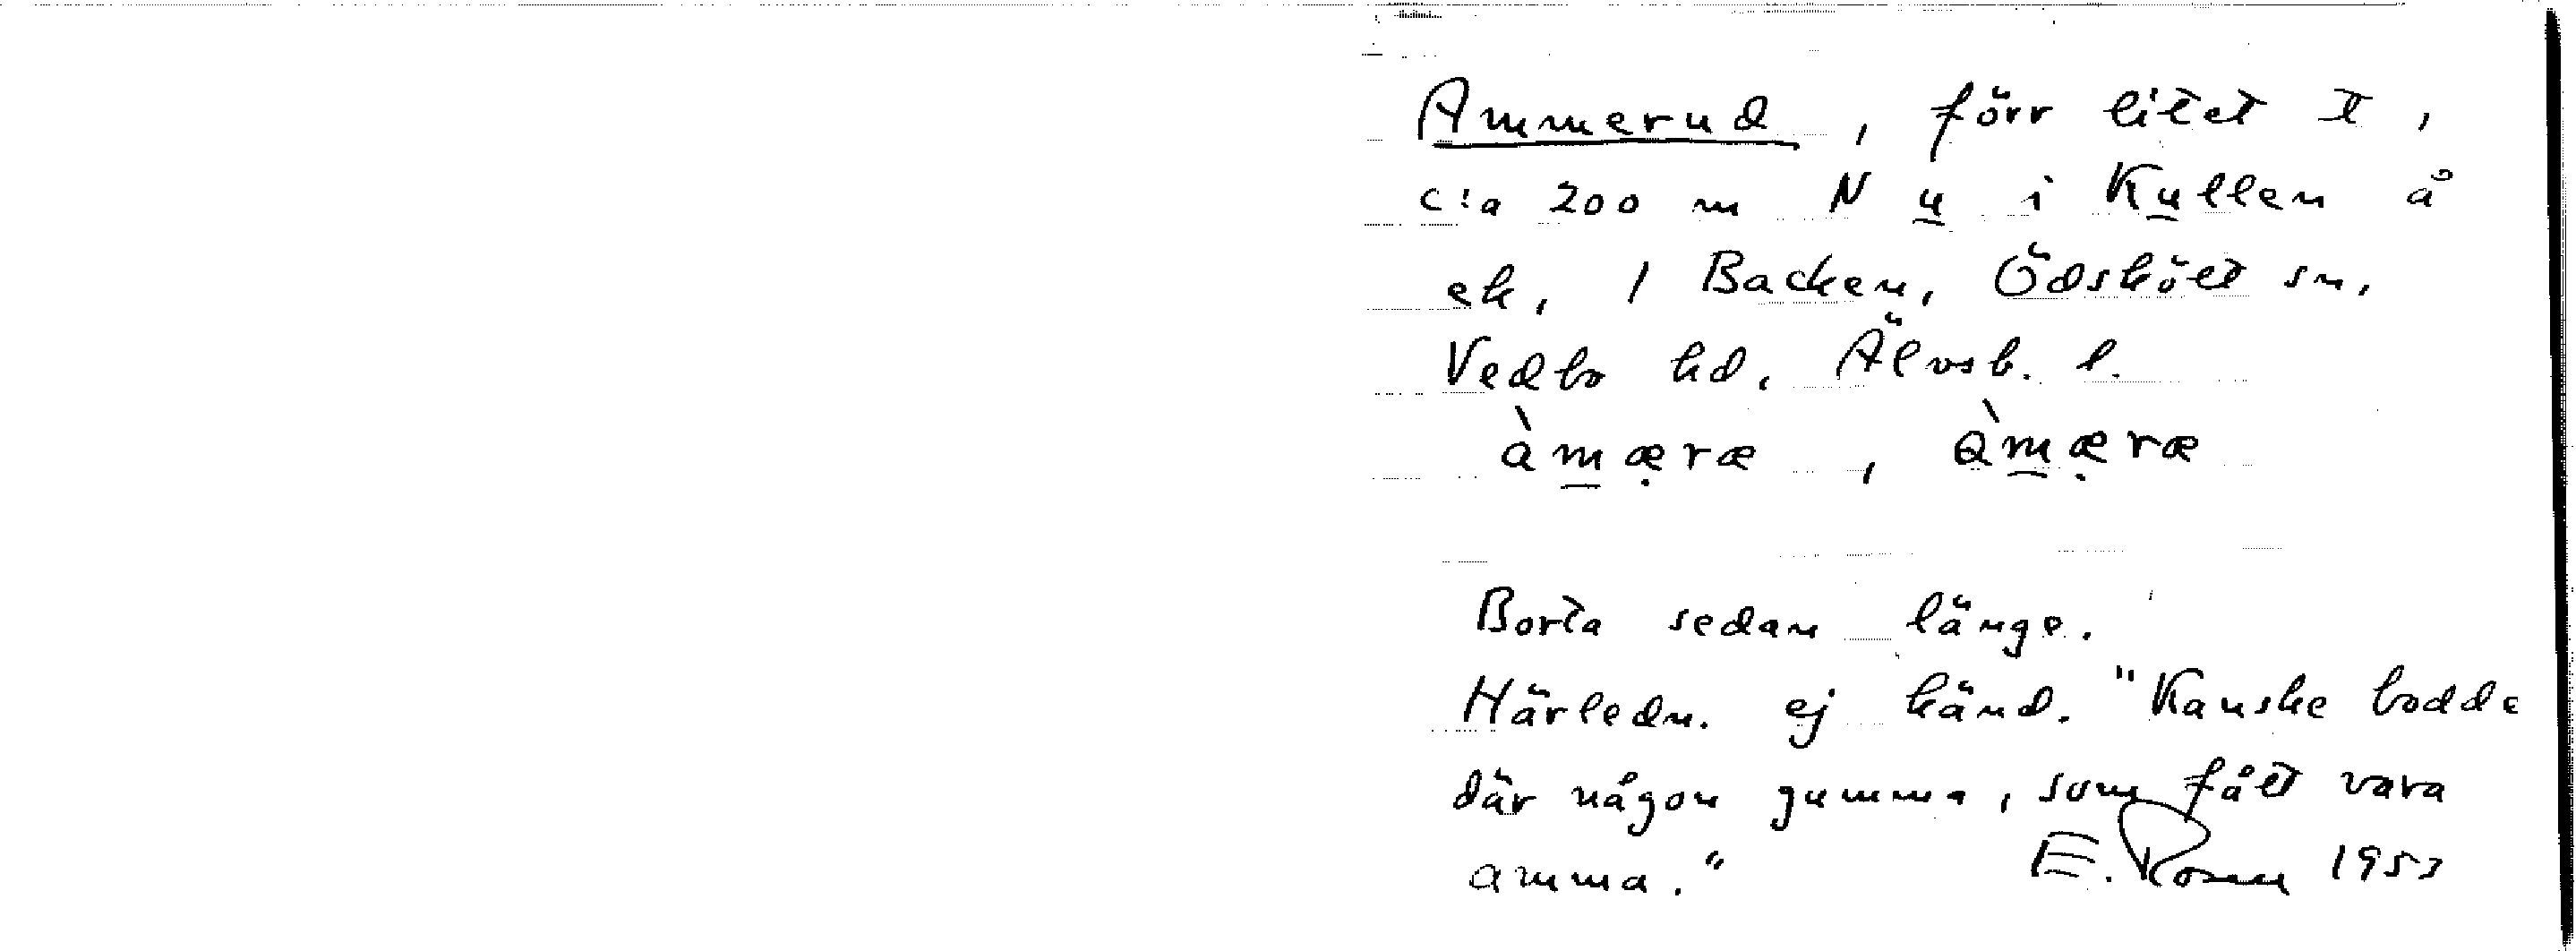 Ammerud, förr litet t,
c:a 200 m N u i Kullen å
ek. 1 Backen, Ödskölt sn,
Vedbo hd, Älvsb. l.
àmæ̣ræ, ɑ̀mæ̣ræ
Borta sedan länge.
Härledn. ej känd. "Kanske bodde
där någon gumma, som fått vara
amma." E. Rosén 1953